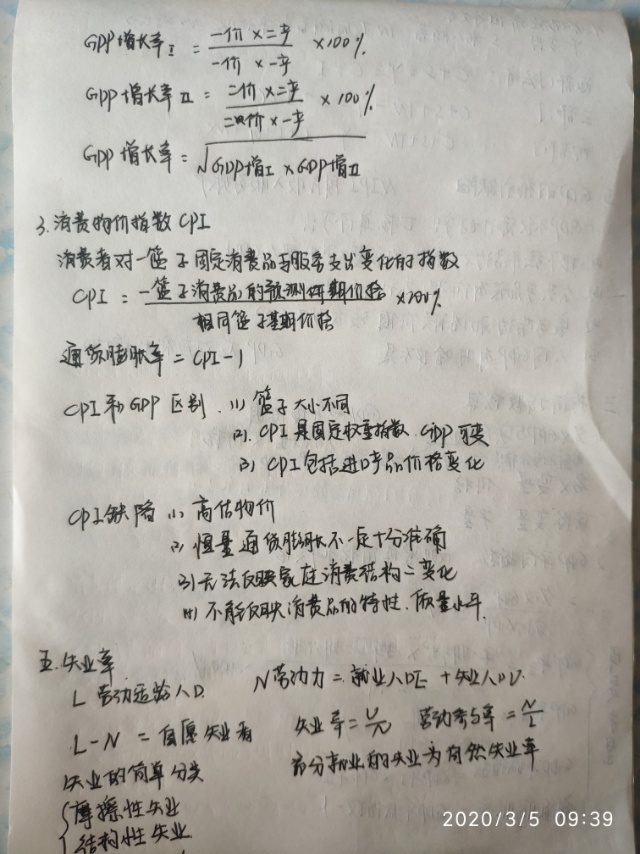 GDP增长率Ⅰ = 一价×二产 / 一价×一产 ×100%
GDP增长率Ⅱ = 二价×二产 / 二价×一产 ×100%
GDP增长率 = √GDP增Ⅰ×GDP增Ⅱ
3.消费物价指数CPI
消费者对一篮子固定消费品与服务支出变化的指数
CPI = 一篮子消费品的预测期价格 / 相同篮子基期价格 ×100%
通货膨胀率=CPI-1
CPI和GDP区别 (1) 篮子大小不同
(2). CPI是固定权重指数. GDP可变
(3) CPI包括进口产品价格变化
CPI缺陷 (1) 高估物价
(2) 恒量通货膨胀不一定十分准确
(3) 无法反映家庭消费结构变化
(4) 不能反映消费品的特性.质量水平.
五.失业率
L 劳动适龄人口 N劳动力=就业人口E+失业人口U
L-N=自愿失业者 失业率=U/N 劳动参与率=N/L
失业的简单分类 充分就业的失业为自然失业率
摩擦性失业
结构性失业
2020/3/5 09:39